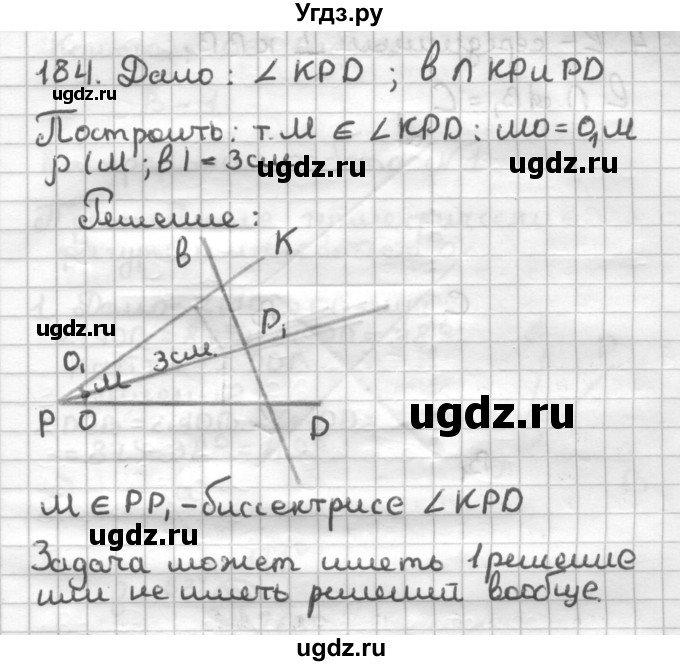 Угдз.ру
184. Дано: ∠KPD; в ∩ KP и PD
Построить: т. M ∈ ∠KPD: MO = O₁M
ρ (M; в) = 3см
ugdz.ru
Решение:
в
K
ugdz.ru
P₁
O₁
3см.
M
ugdz.ru
P
O
D
M ∈ PP₁ - биссектрисе ∠KPD
ugdz.ru
Задача может иметь 1 решение
или не иметь решений вообще.
ugdz.ru
ugdz.ru